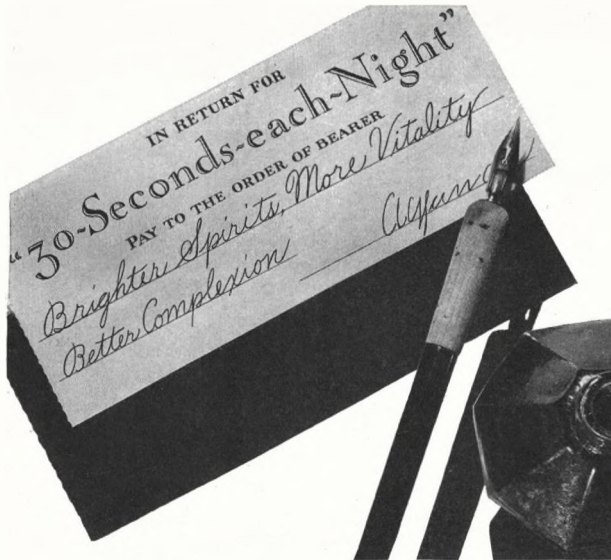 IN RETURN FOR
"30-Seconds-each-Night"
PAY TO THE ORDER OF BEARER
Brighter Spirits, More Vitality
Better Complexion